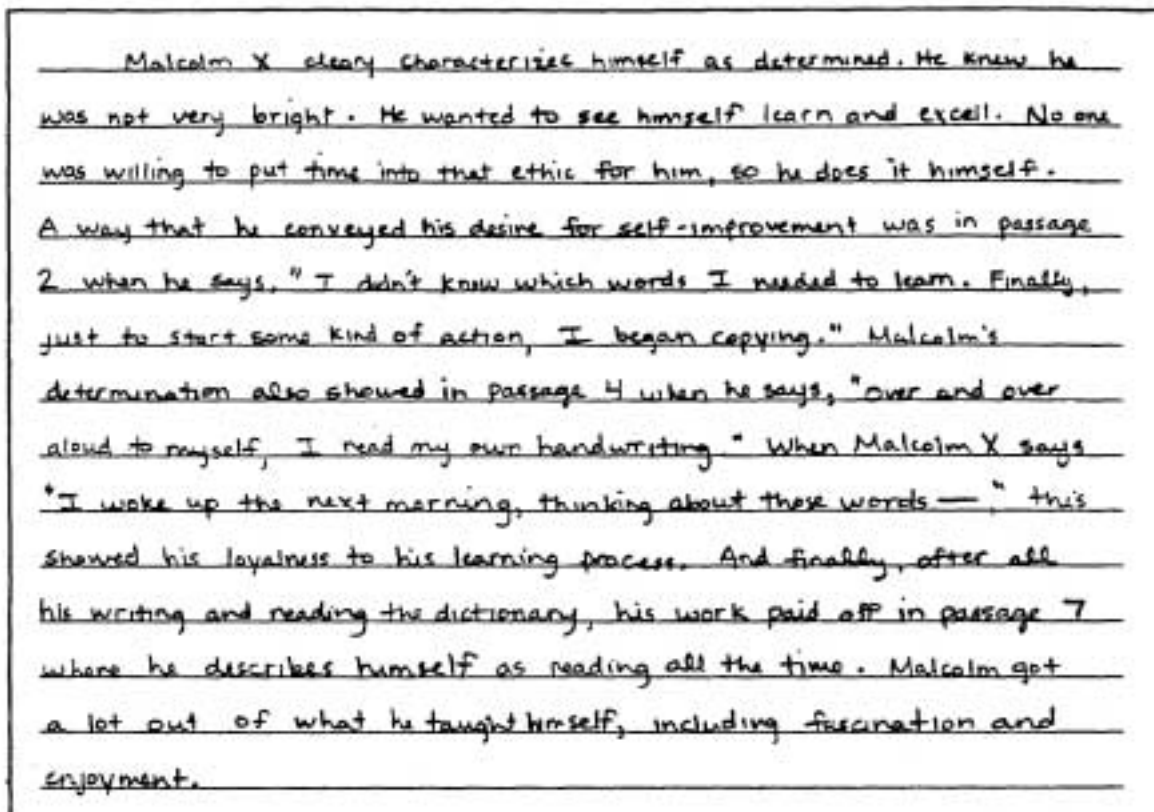 Malcolm X cleary characterizes himself as determined. He knew he
was not very bright. He wanted to see himself learn and excell. No one
was willing to put time into that ethic for him, so he does it himself.
A way that he conveyed his desire for self-improvement was in passage
2 when he says, "I didn't know which words I needed to learn. Finally,
just to start some kind of action, I began copying." Malcolm's
determination also showed in passage 4 when he says, "over and over
aloud to myself, I read my own handwriting." When Malcolm X says
"I woke up the next morning, thinking about those words —," this
showed his loyalness to his learning process. And finally, after all
his writing and reading the dictionary, his work paid off in passage 7
where he describes himself as reading all the time. Malcolm got
a lot out of what he taught himself, including fascination and
enjoyment.